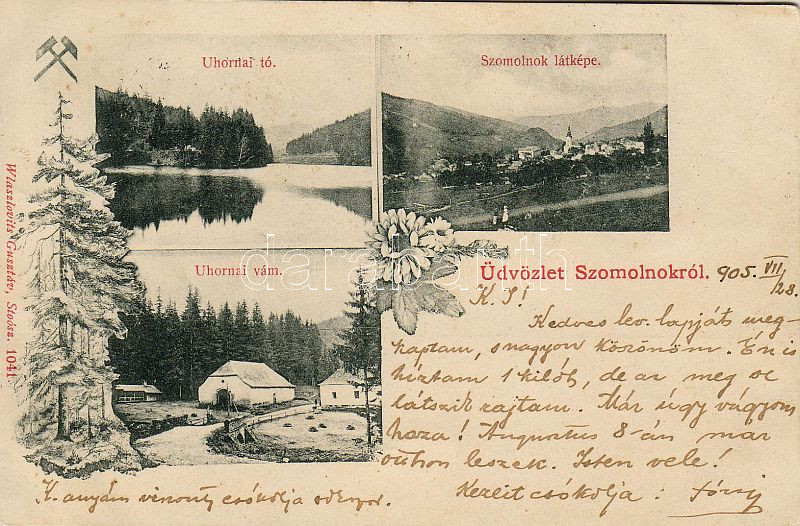 Uhornai tó.
Szomolnok látképe.
Wlaszlovits Gusztáv, Stoósz. 1041
Uhornai vám.
Üdvözlet Szomolnokról. 905. VII/28.
darabanth
K. I!
Kedves lev. lapját meg-
kaptam, s nagyon köszönöm. Én is
híztam 1 kilót, de az meg se
látszik rajtam. Már úgy vágyom
haza! Augusztus 8-án már
otthon leszek. Isten vele!
Kezeit csókolja:
K. anyám viszont csókolja